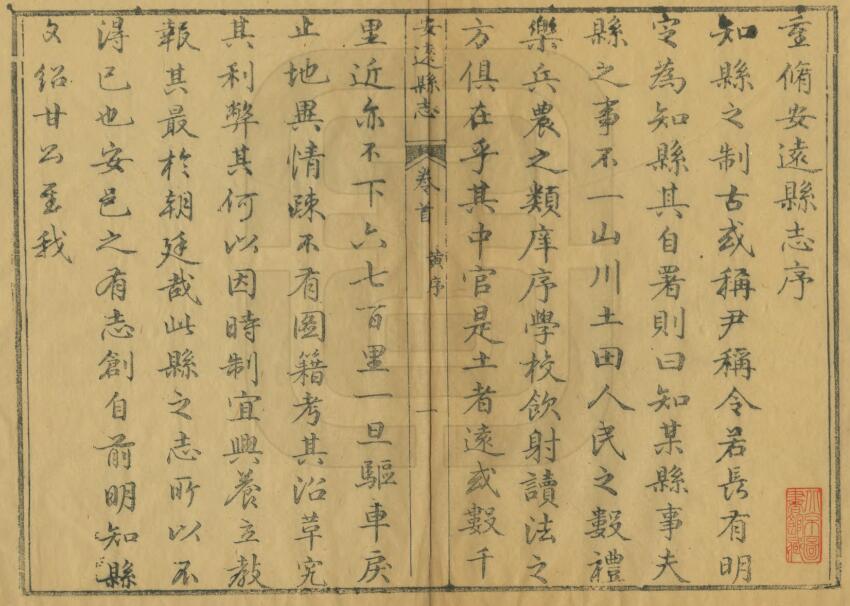 重脩安遠縣志序
知縣之制古或稱尹稱令若長有明
定為知縣其自署則曰知某縣事夫
縣之事不一山川土田人民之數禮
樂兵農之類庠序學校飲射讀法之
方俱在乎其中官是土者遠或數千
安遠縣志
卷首
黃序
一
里近亦不下六七百里一旦驅車戾
止地異情踈不有圖籍考其沿革究
其利弊其何以因時制宜興養立教
報其最於朝廷哉此縣之志所以不
得已也安邑之有志創自前明知縣
文紹甘公至我